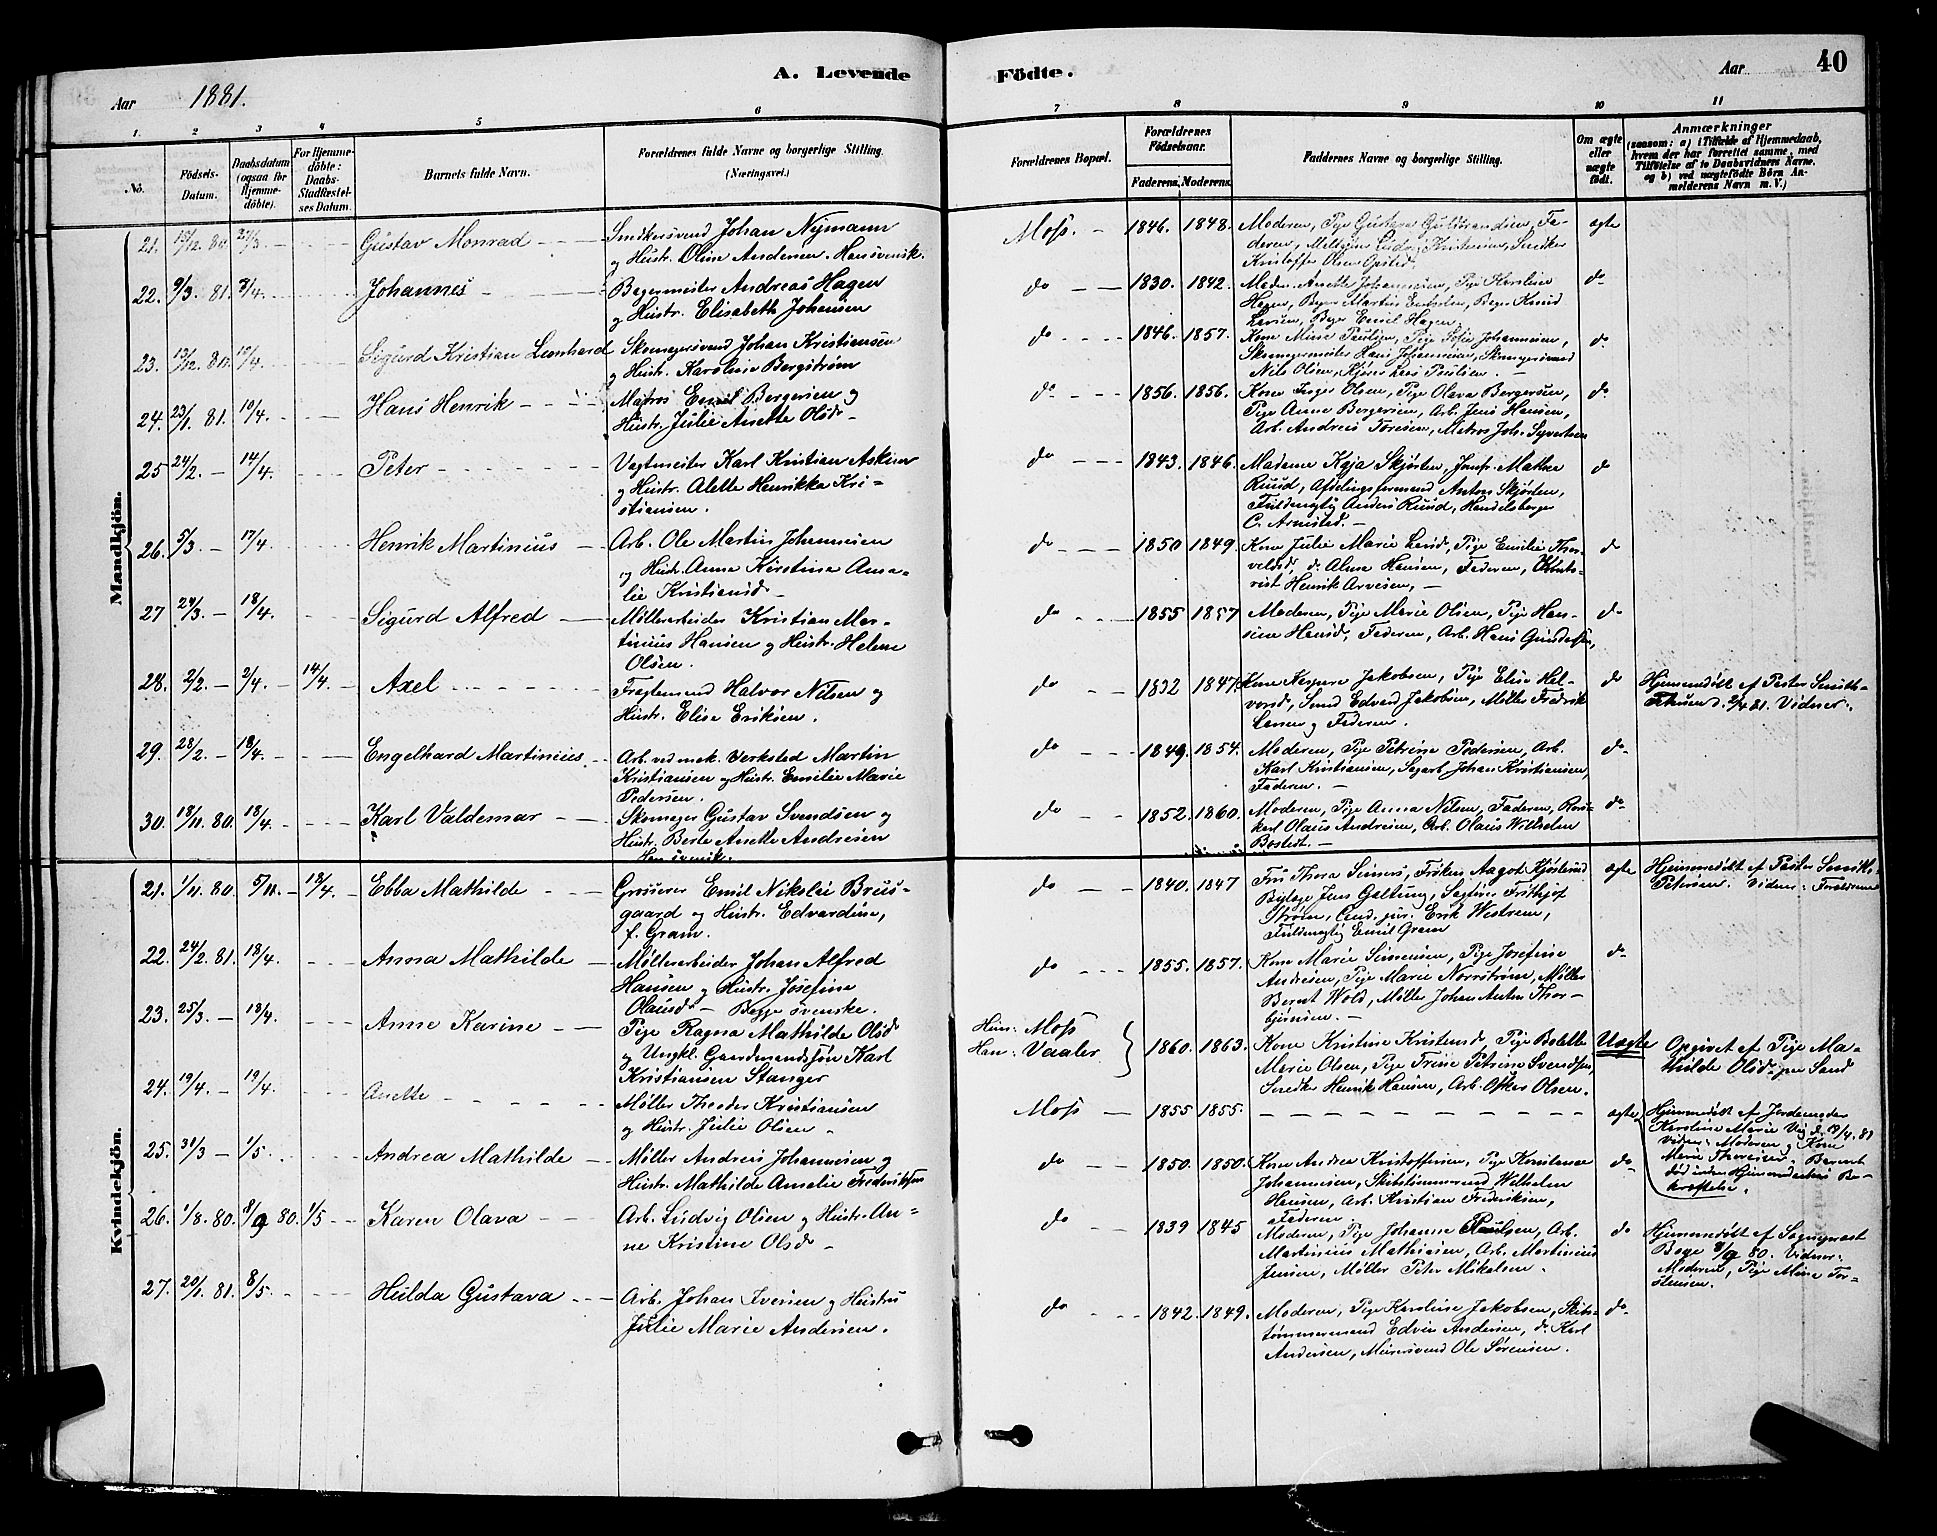 A. Levende Födte.
40
Aar 1881.
Aar
1. 2 3 4 5 6 7 8 9 10 11
No.
Födsels-Datum.
Daabsdatum (ogsaa for Hjemmedöbte).
For Hjemmedöbte: Daabs-Stadfæstelses Datum.
Barnets fulde Navn.
Forældrenes fulde Navne og borgerlige Stilling. (Næringsvei.)
Forældrenes Bopæl.
Forældrenes Födselsaar.
Faderens. Moderens.
Faddernes Navne og borgerlige Stilling.
Om ægte eller uægte födt.
Anmærkninger
(saasom: a) i Tilfælde af Hjemmedaab, hvem der har forrettet samme, med Tilföielse af to Daabsvidners Navne, og b) ved uægtefödte Börn Anmelderens Navn m. V.)
Mandkjön.
21. 18/12. 80. 27/3 Gustav Monrad
Snedkersvend Johan Nymann
og Hustr. Oline Andersen. Han svensk.
Moss. 1846. 1848.
Moderen, Pige Gustava Guldbrandsen, Fa-
deren,
Kristoffer Olsen Opsted.
ægte
22. 9/3. 81. 3/4. Johannes
Bagermester Andreas Hagen
og Hustr. Elisabeth Johansen
do 1830. 1842.
Madm. Anette Johannesen, Pige Karoline
Hagen, Bager Martin Eriksen, Bager Knud
Larsen, Bager Emil Hagen,
do
23. 13/12. 80. 17/4. Sigurd Kristian Leonhard
Skomagersvend Johan Kristiansen
og Hustr. Karoline Bergstrøm
do 1846. 1857.
Kone Mine Paulsen, Pige Sofie Johannesen,
Skomagermester Hans Johannesen, Skomagersvend
Nils Olsen, Lars Paulsen.
do
24. 23/1. 81. 10/4. Hans Henrik
Matros Emil Bergersen og
Hustr. Julie Anette Olsdr
do 1856. 1856.
Kone Inger Olsen, Pige Olava Bergersen,
Pige Anna Bergersen, Arb. Jens Hansen,
Arb. Andreas Toresen, Matros Joh. Syvertsen
do
25 24/2. 14/4. Peter
Vagtmester Karl Kristian Askim
og Hustr. Alette Henrikka Kri-
stiansen.
do 1843. 1846.
Madame Kaja Skjørten, Jomfr. Mathea
Ruud, Afdelingsformand Anton Skjørten,
Fuldmægtig Anders Ruud, Handelsborger
C. Arnsted.
do
26. 5/3 17/4. Henrik Martinius
Arb. Ole Martin Johannesen
og Hustr. Anne Kirstine Ama-
lie Kristiansd.
do 1850 1849.
Kone Julie Marie Larsd, Pige Emilie Thor-
valdsd, do Alma Hansen, Faderen,
Henrik Arvesen,
do
27 24/3. 18/4. Sigurd Alfred
Møllerarbeider Kristian Mar-
tinius Hansen og Hustr. Helene
Olsen.
do 1855 1857
Moderen, Pige Marie Olsen, Pige Han-
sine Hansd, Faderen, Arb. Hans Gundersen,
do
28. 2/2. 2/4. 14/4. Axel
Fragtemand Halvor Nilsen og
Hustr. Elise Eriksen.
do 1832 1847.
Kone Jakobsen, Pige Elise Hal-
vorsd, Smed Edvard Jakobsen, Møller Fredrik
Larsen og Faderen.
do
Hjemmedøbt af Pastor Smith-
Petersen d. 2/4 81. Vidner:
29. 28/2. 18/4. Engelhard Martinius.
Arb. ved mek. Verksted Martin
Kristiansen og Hustr. Emilie Marie
Pedersen.
do 1849. 1854.
Moderen, Pige Petrine Pedersen, Arb.
Karl Kristiansen, Sagarb. Johan Kristiansen,
Faderen.
do
30. 18/11. 80. 18/4. Karl Valdemar
Skomager Gustav Svendsen og
Hustr. Berte Anette Andresen
Han svensk.
do 1852. 1860.
Moderen, Pige Anna Nilsen, Faderen,
Olaus Andresen, Arb. Olaus Wilhelm
Bostedt.
do
Kvindekjön.
21. 1/11. 80. 5/11. 18/4. Ebba Mathilde
Grosserer Emil Nikolai Brus-
gaard og Hustr. Edvardine,
f. Gram.
do 1840. 1847
Fru Thora Sinnes, Frøken Aagot Kjøsterud
Byfoged Jens Galtung, Sagfører Frithjof
Strøm, Cand. jur. Erik Westrem,
Fuldmægtig Emil Gram
ægte
Hjemmedøbt af Pastor Smith-
Petersen. Vidner: Forældrene
22. 24/2. 81. 18/4. Anna Mathilde
Møllerarbeider Johan Alfred
Hansen og Hustr. Josefine
Olausdr. Begge svenske.
do 1855. 1857.
Kone Marie Simensen, Pige Josefine
Andresen, Pige Marie Norrstrøm, Møller
Bernt Wold, Møller Johan Anton Thor-
bjørnsen.
do
23. 25/3. 18/4. Anne Karine
Pige Ragna Mathilde Olsdr
og Ungkl. Gaardmandssøn Karl
Kristiansen Stanger
Hun: Moss
Han: Vaaler
1860. 1863.
Kone Kristine Kristensd, Pige Bolette
Marie Olsen, Pige Petrine Svendsen,
Snedker Henrik Hansen, Arb. Oskar Olsen.
Uægte
Opgivet af Pige Ma-
thilde Olsdr. pr. Sand
24. 19/4. 19/4. Anette
Møller Theodor Kristiansen
og Hustr. Julie Olsen
Moss 1855 1855.
ægte
Hjemmedøbt af Jordemoder
Karoline Marie Vig d. 19/4. 81
Vidner: Moderen og Kone
Marie Thoresen. Barnet
død inden Hjemmedaabens Be-
kræftelse.
25. 31/3 1/5. Andrea Mathilde
Møller Andreas Johannesen og
Hustr. Mathilde Amalie Frederiksen
do 1850. 1850.
Kone Andrea Kristoffersen, Pige Konstance
Johannesen, Skibstimmermand Wilhelm
Hansen, Arb. Kristian Frederiksen,
Faderen
do
26. 1/8. 80. 8/9 80. 1/5 Karen Olava
Arb. Ludvig Olsen og Hustr. An-
ne Kristine Olsdr
do 1839 1845
Moderen, Pige Johanne Paulsen, Arb.
Martinius Mathiesen, Arb. Martinius
Jensen, Møller Peter Mikalsen.
do
Hjemmedøbt af Sogneprest
Bøge 8/9 80. Vidner:
Moderen, Pige Mine Tor-
stensen.
27. 20/1. 81. 8/5. Hulda Gustava
Arb. Johan Iversen og Hustru
Julie Marie Andersen.
do 1842. 1849.
Moderen, Pige Karoline Jakobsen, Skibs-
tømmermand Edvin Andersen, do Karl
Andersen, Murersvend Ole Sørensen.
do